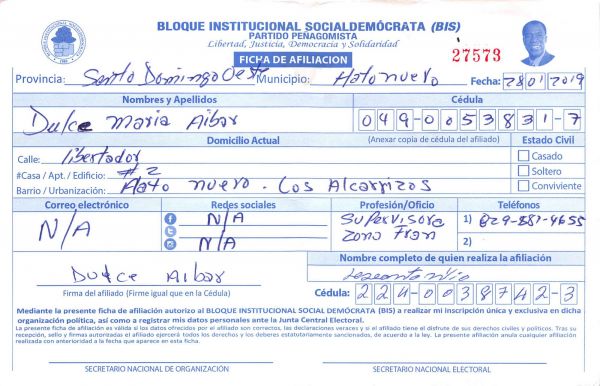 BLOQUE INSTITUCIONAL SOCIALDEMÓCRATA (BIS)
PARTIDO PEÑAGOMISTA
Libertad, Justicia, Democracia y Solidaridad
FICHA DE AFILIACION
27573
Provincia: Santo Domingo Oeste Municipio: Hato nuevo Fecha: 28 01 2019
Nombres y Apellidos Cédula
Dulce Maria Aibar 049-0053831-7
Domicilio Actual (Anexar copia de cédula del afiliado) Estado Civil
Calle: libertador Casado
#Casa / Apt. / Edificio: #2 Soltero
Barrio / Urbanización: Hato nuevo - Los Alcarrizos Conviviente
Correo electrónico Redes sociales Profesión/Oficio Teléfonos
N/A N/A Supervisora 1) 829-881-4655
N/A Zona Fran 2)
Nombre completo de quien realiza la afiliación
Dulce Aibar
Firma del afiliado (Firme igual que en la Cédula) Cédula: 224-0038742-3
Mediante la presente ficha de afiliación autorizo al BLOQUE INSTITUCIONAL SOCIAL DEMÓCRATA (BIS) a realizar mi inscripción única y exclusiva en dicha
organización política, así como a registrar mis datos personales ante la Junta Central Electoral.
La presente ficha de afiliación es válida si los datos ofrecidos por el afiliado son correctos, las declaraciones veraces y si el afiliado tiene el disfrute de sus derechos civiles y políticos. Tras su
recepción, sello y firmas autorizadas el afiliado ejercerá todos los derechos y los deberes estatutariamente sancionados, de acuerdo a la ley. La presente afiliación anula cualquier afiliación
realizada con anterioridad a la fecha que aparece en esta ficha.
SECRETARIO NACIONAL DE ORGANIZACIÓN SECRETARIO NACIONAL ELECTORAL